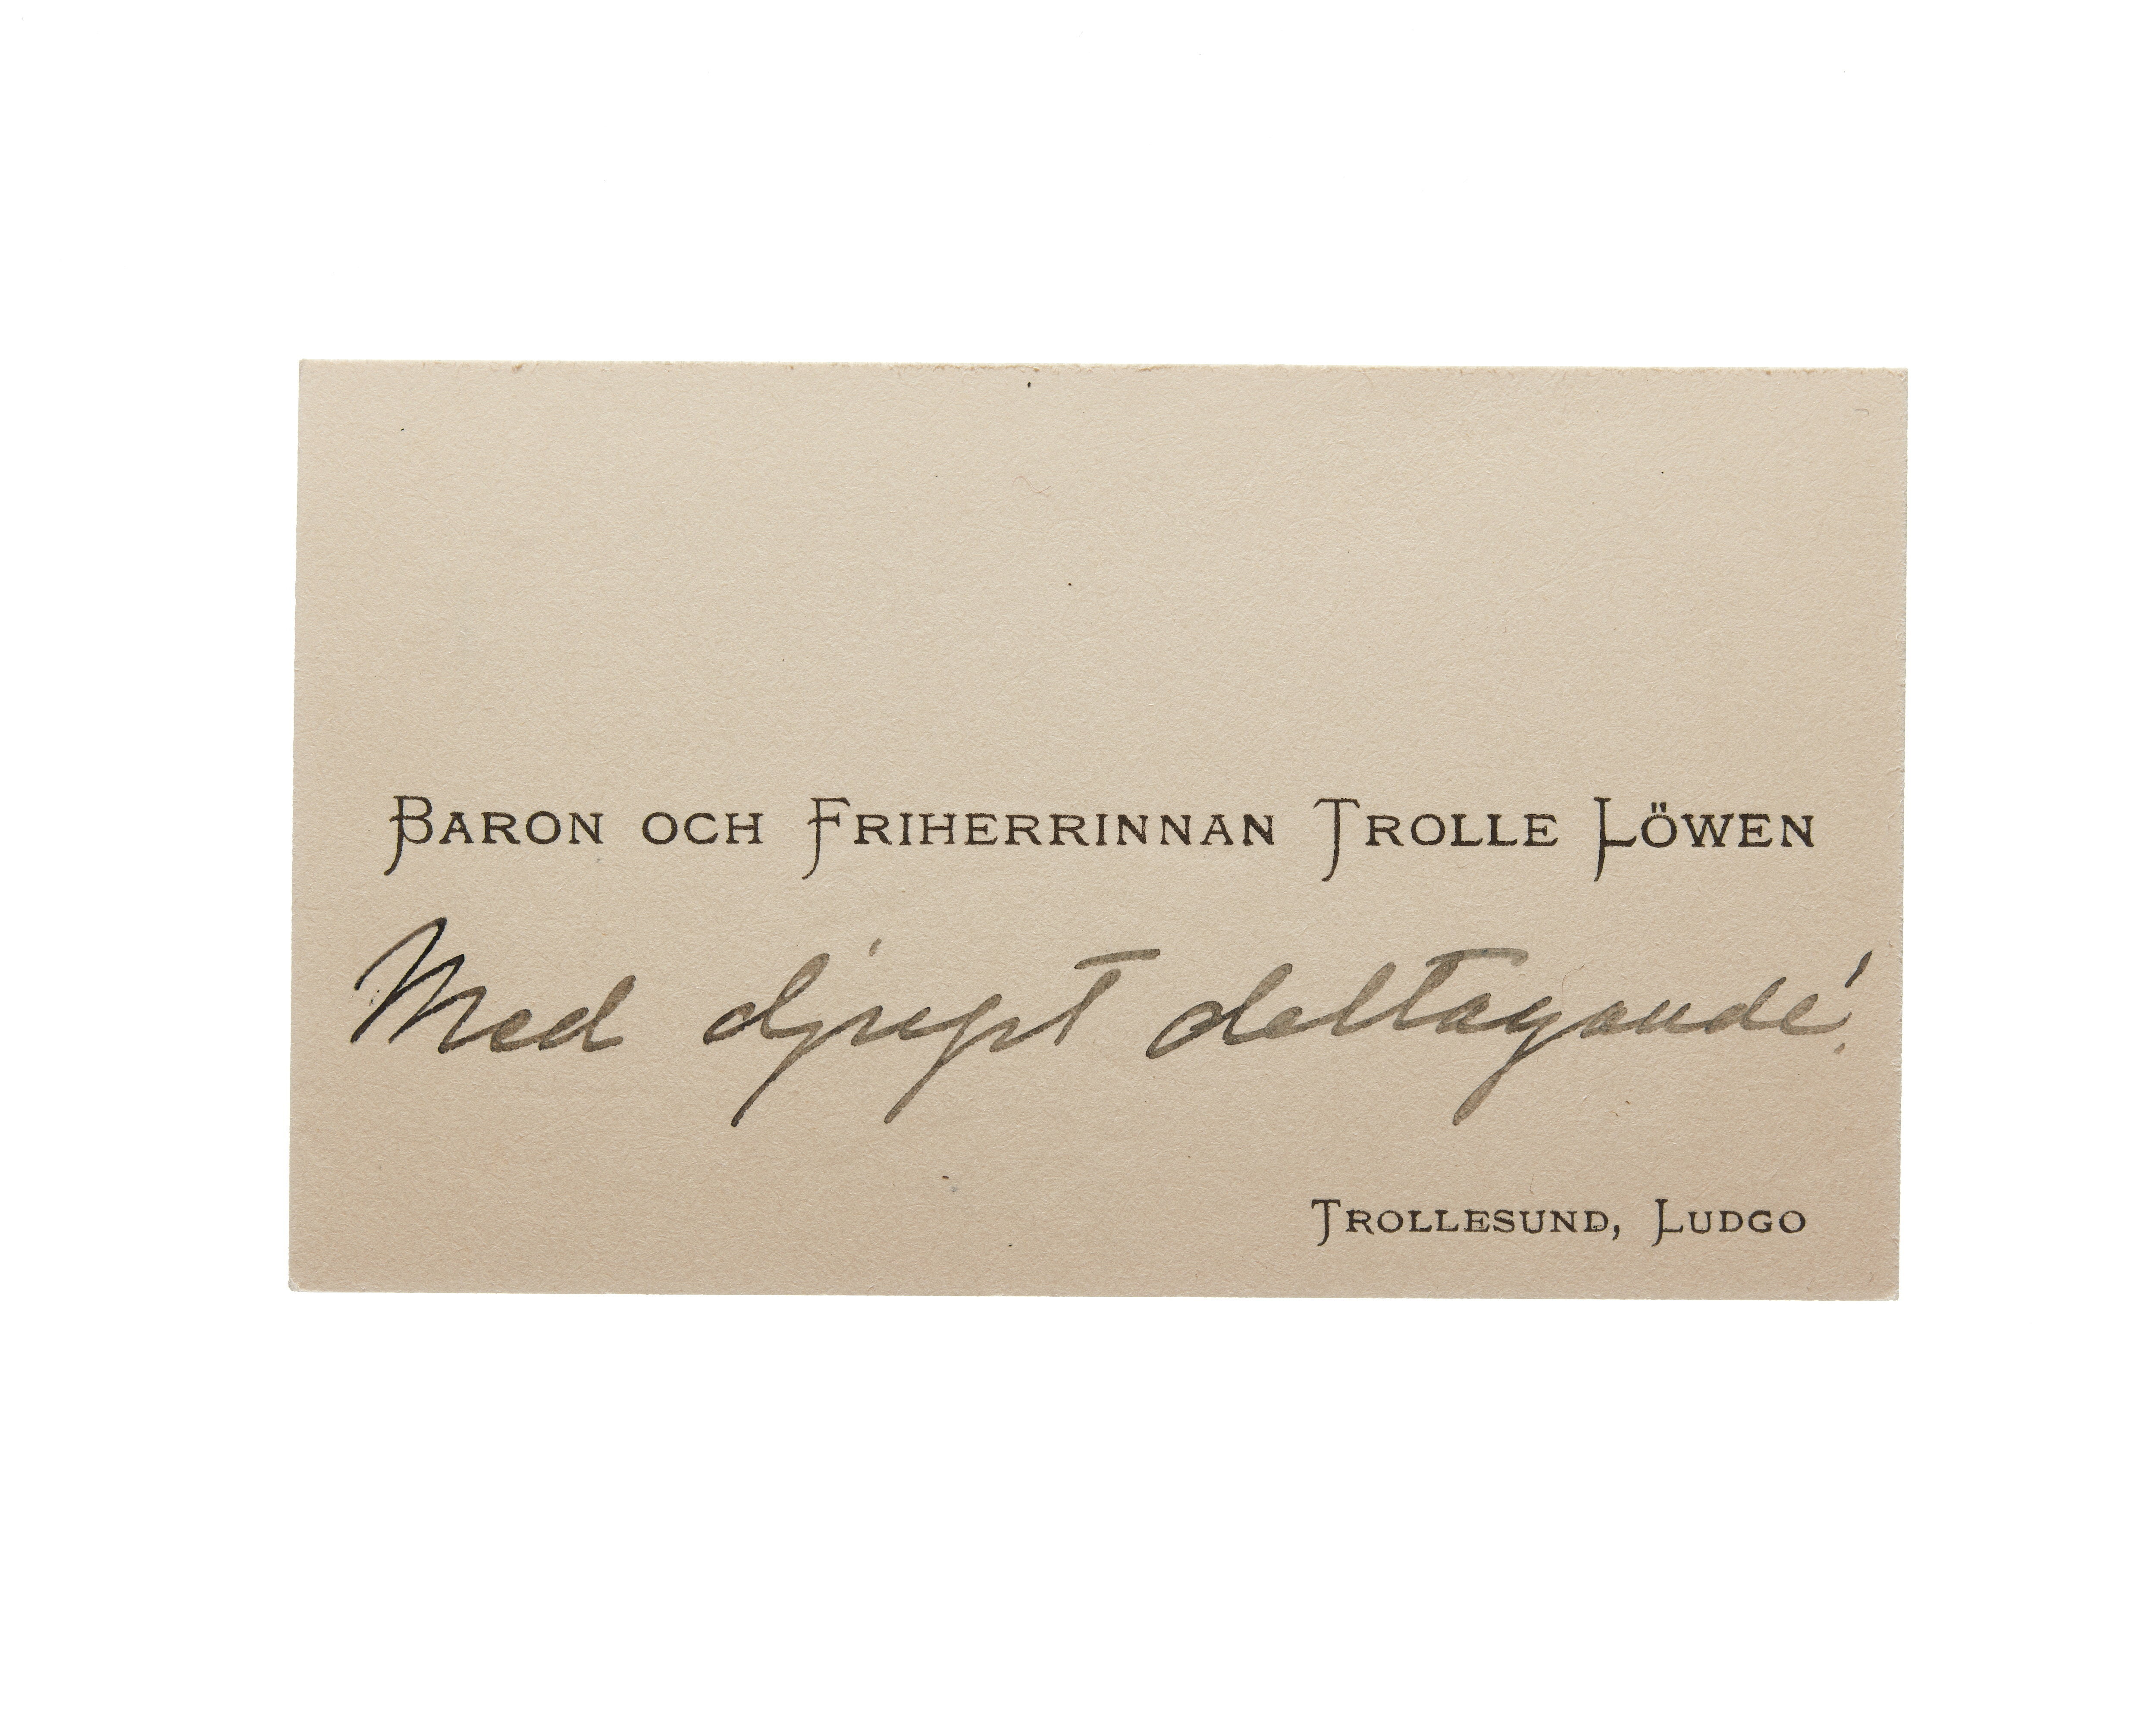 BARON OCH FRIHERRINNAN TROLLE LÖWEN
Med djupt deltagande!
TROLLESUND, LUDGO